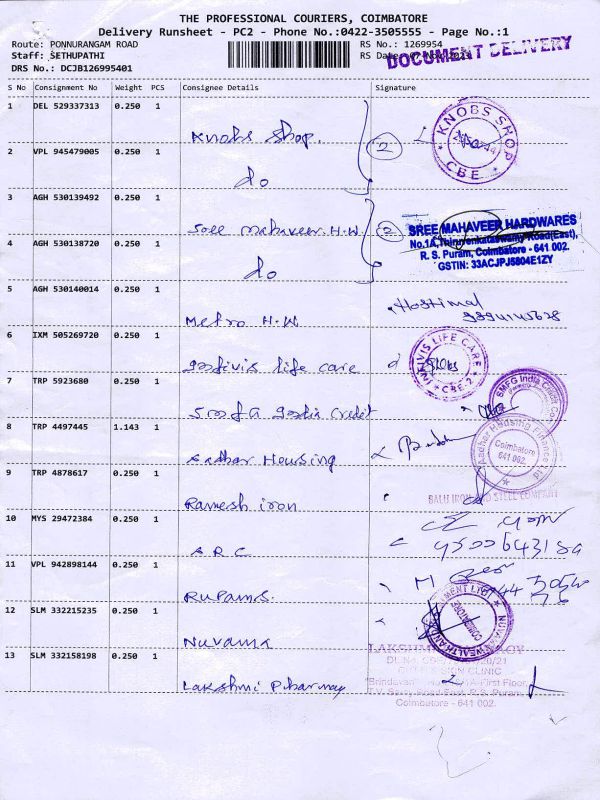 THE PROFESSIONAL COURIERS, COIMBATORE
Delivery Runsheet - PC2 - Phone No.:0422-3505555 - Page No.:1
Route: PONNURANGAM ROAD
RS No.: 1269954
Staff: SETHUPATHI
RS Date:
DOCUMENT DELIVERY
DRS No.: DCJB126995401
S No Consignment No Weight PCS Consignee Details Signature
1 DEL 529337313 0.250 1 Knobs Shop.
KNOBS SHOP
CBE
2 VPL 945479005 0.250 1 do
2
3 AGH 530139492 0.250 1 Sree Mahaveer H.W.
2
SREE MAHAVEER HARDWARES
No.1A, Thiruvenkataswamy Road(East),
R. S. Puram, Coimbatore - 641 002.
GSTIN: 33ACJPJ5804E1ZY
4 AGH 530138720 0.250 1 do
5 AGH 530140014 0.250 1 Metro H.W
Hastimal
6 IXM 505269720 0.250 1 life care
INIVIS LIFE CARE
CBE-2
7 TRP 5923680 0.250 1 Credit
SMFG India Credit Co
8 TRP 4497445 1.143 1 Aadhar Housing
Aadhar Housing Finance
Coimbatore
641 002.
9 TRP 4878617 0.250 1 Ramesh iron
SALU IRON AND STEEL COMPANY
10 MYS 29472384 0.250 1 A R C
11 VPL 942898144 0.250 1 Rupams.
12 SLM 332215235 0.250 1 Nuvama
NUVAMA WEALTH AND
COIMBATORE
13 SLM 332158198 0.250 1 Lakshmi Pharmay
LAKSHMI
SKIN CLINIC
First Floor,
R.S. Puram,
Coimbatore - 641 002.